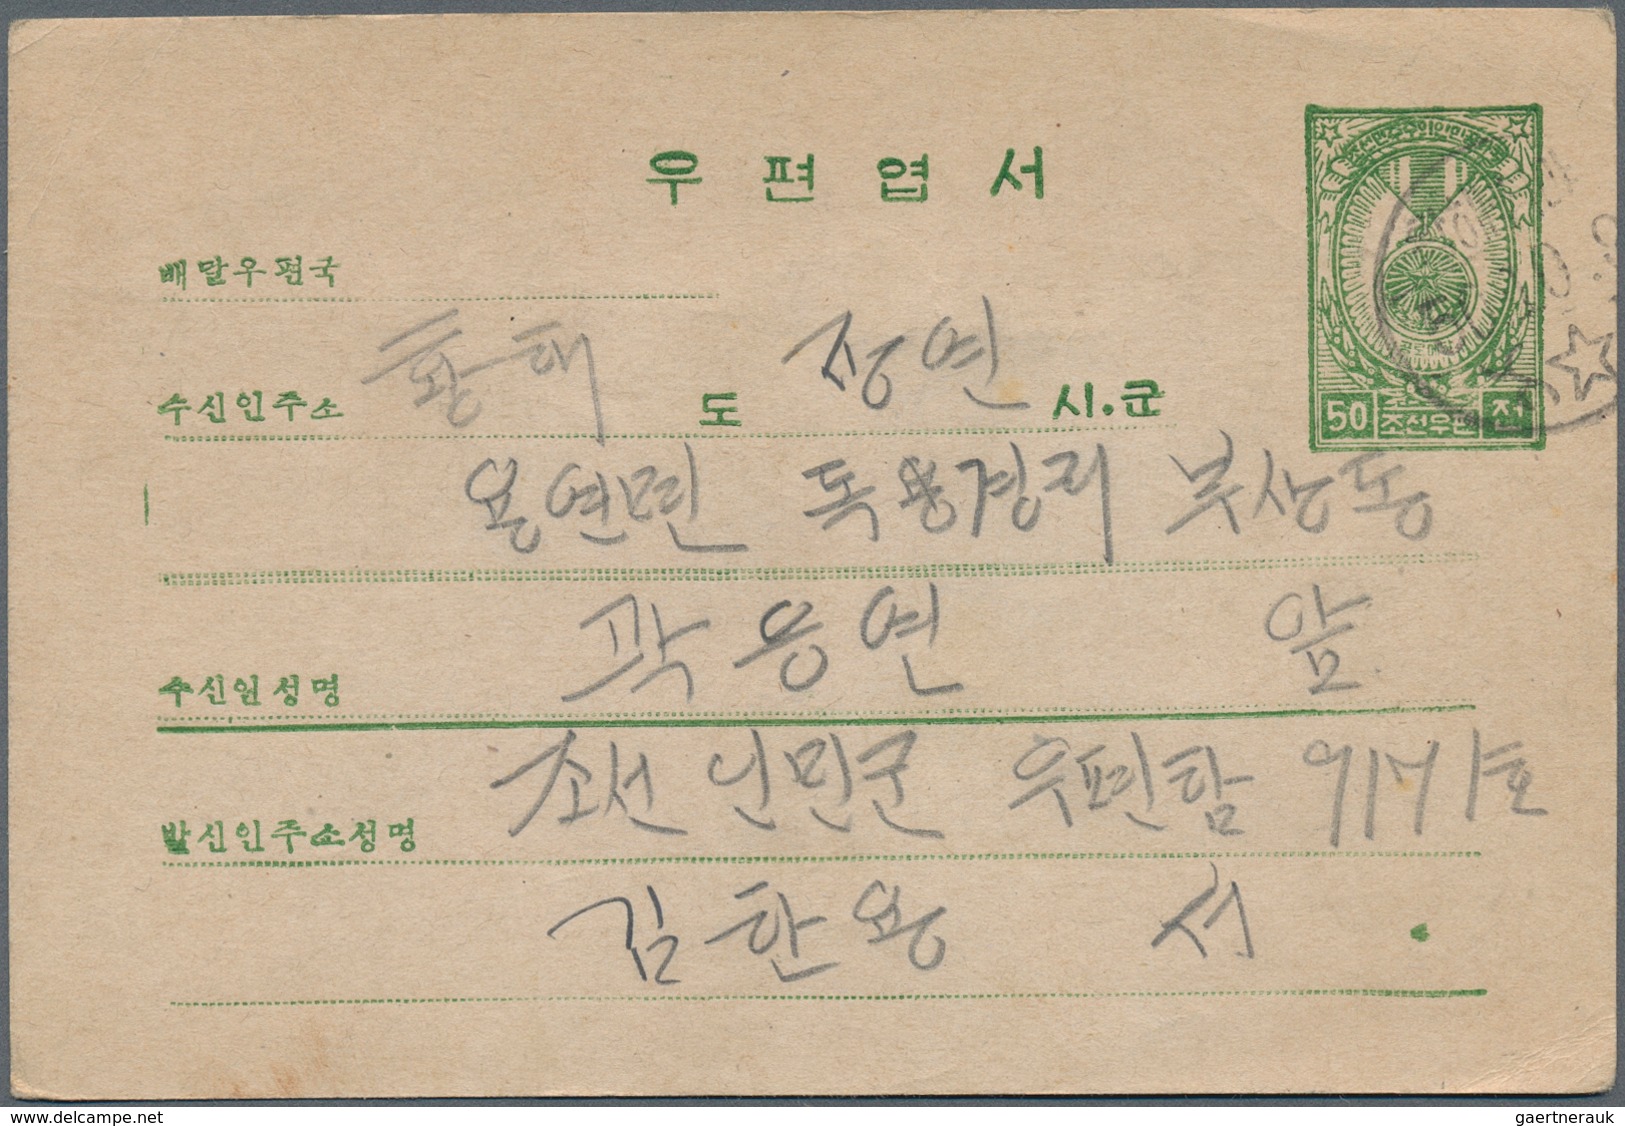 우편엽서
배달우편국
수신인주소 황해 도 장연 시.군
용연면 독용경리 부상동
수신인성명 곽용연 앞
발신인주소성명 조선 인민군 우편함
김한용 서
50 조선우표 전
delcampe.net
gaertnerauk